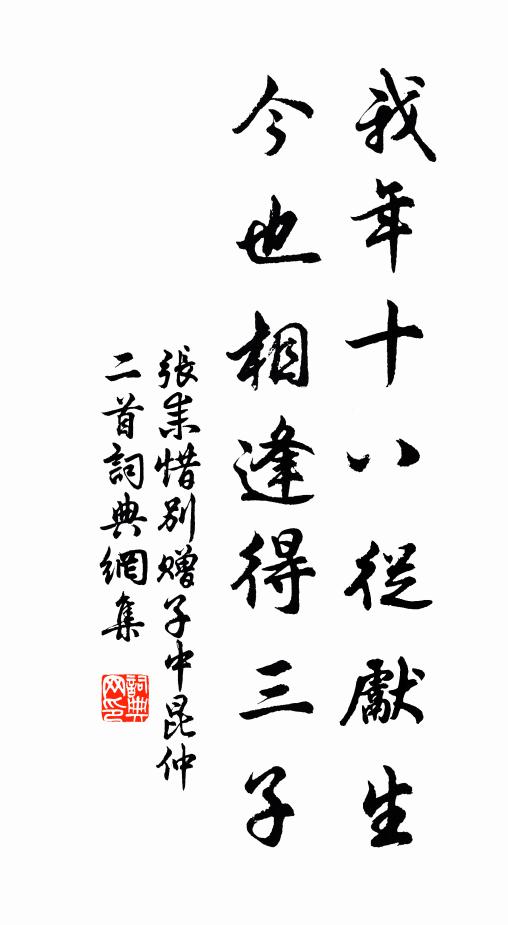 我年十八從獻生
今也相逢得三子
張耒惜別贈子中昆仲
二首詞典網集
詞典
网印